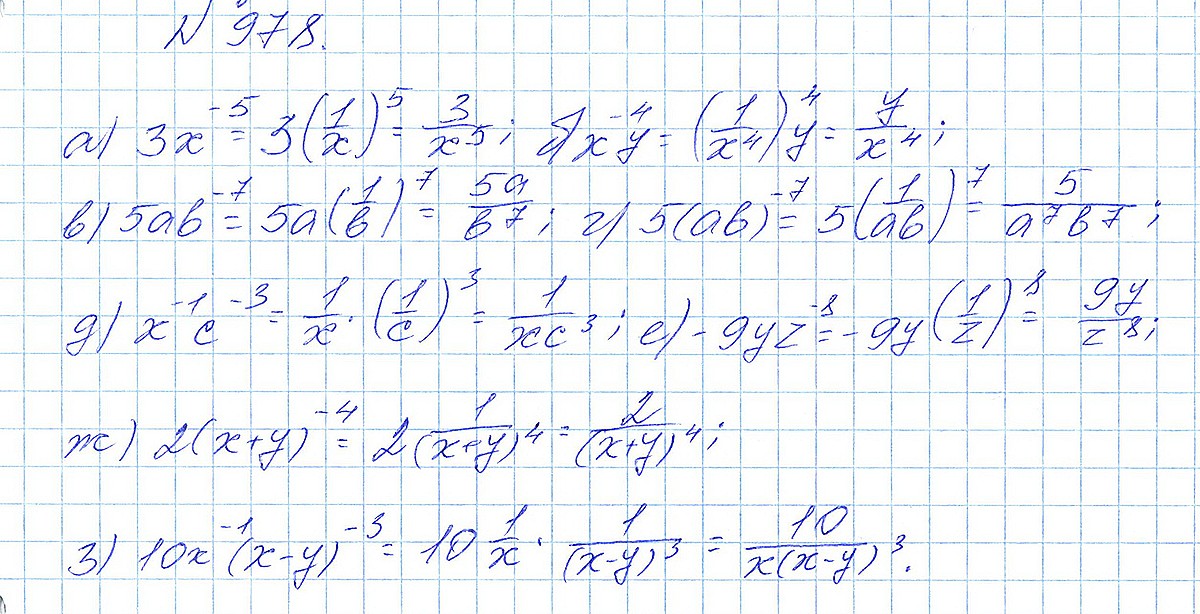 № 978.
а) 3x⁻⁵ = 3(1/x)⁵ = 3/x⁵; б) x⁻⁴y = (1/x⁴)⁴y = y/x⁴;
в) 5ab⁻⁷ = 5a(1/b)⁷ = 5a/b⁷; г) 5(ab)⁻⁷ = 5(1/ab)⁷ = 5/a⁷b⁷;
д) x⁻¹c⁻³ = 1/x · (1/c)³ = 1/xc³; е) -9yz⁻⁸ = -9y(1/z)⁸ = 9y/z⁸;
ж) 2(x+y)⁻⁴ = 2 1/(x+y)⁴ = 2/(x+y)⁴;
з) 10x⁻¹(x-y)⁻³ = 10 1/x · 1/(x-y)³ = 10/x(x-y)³.